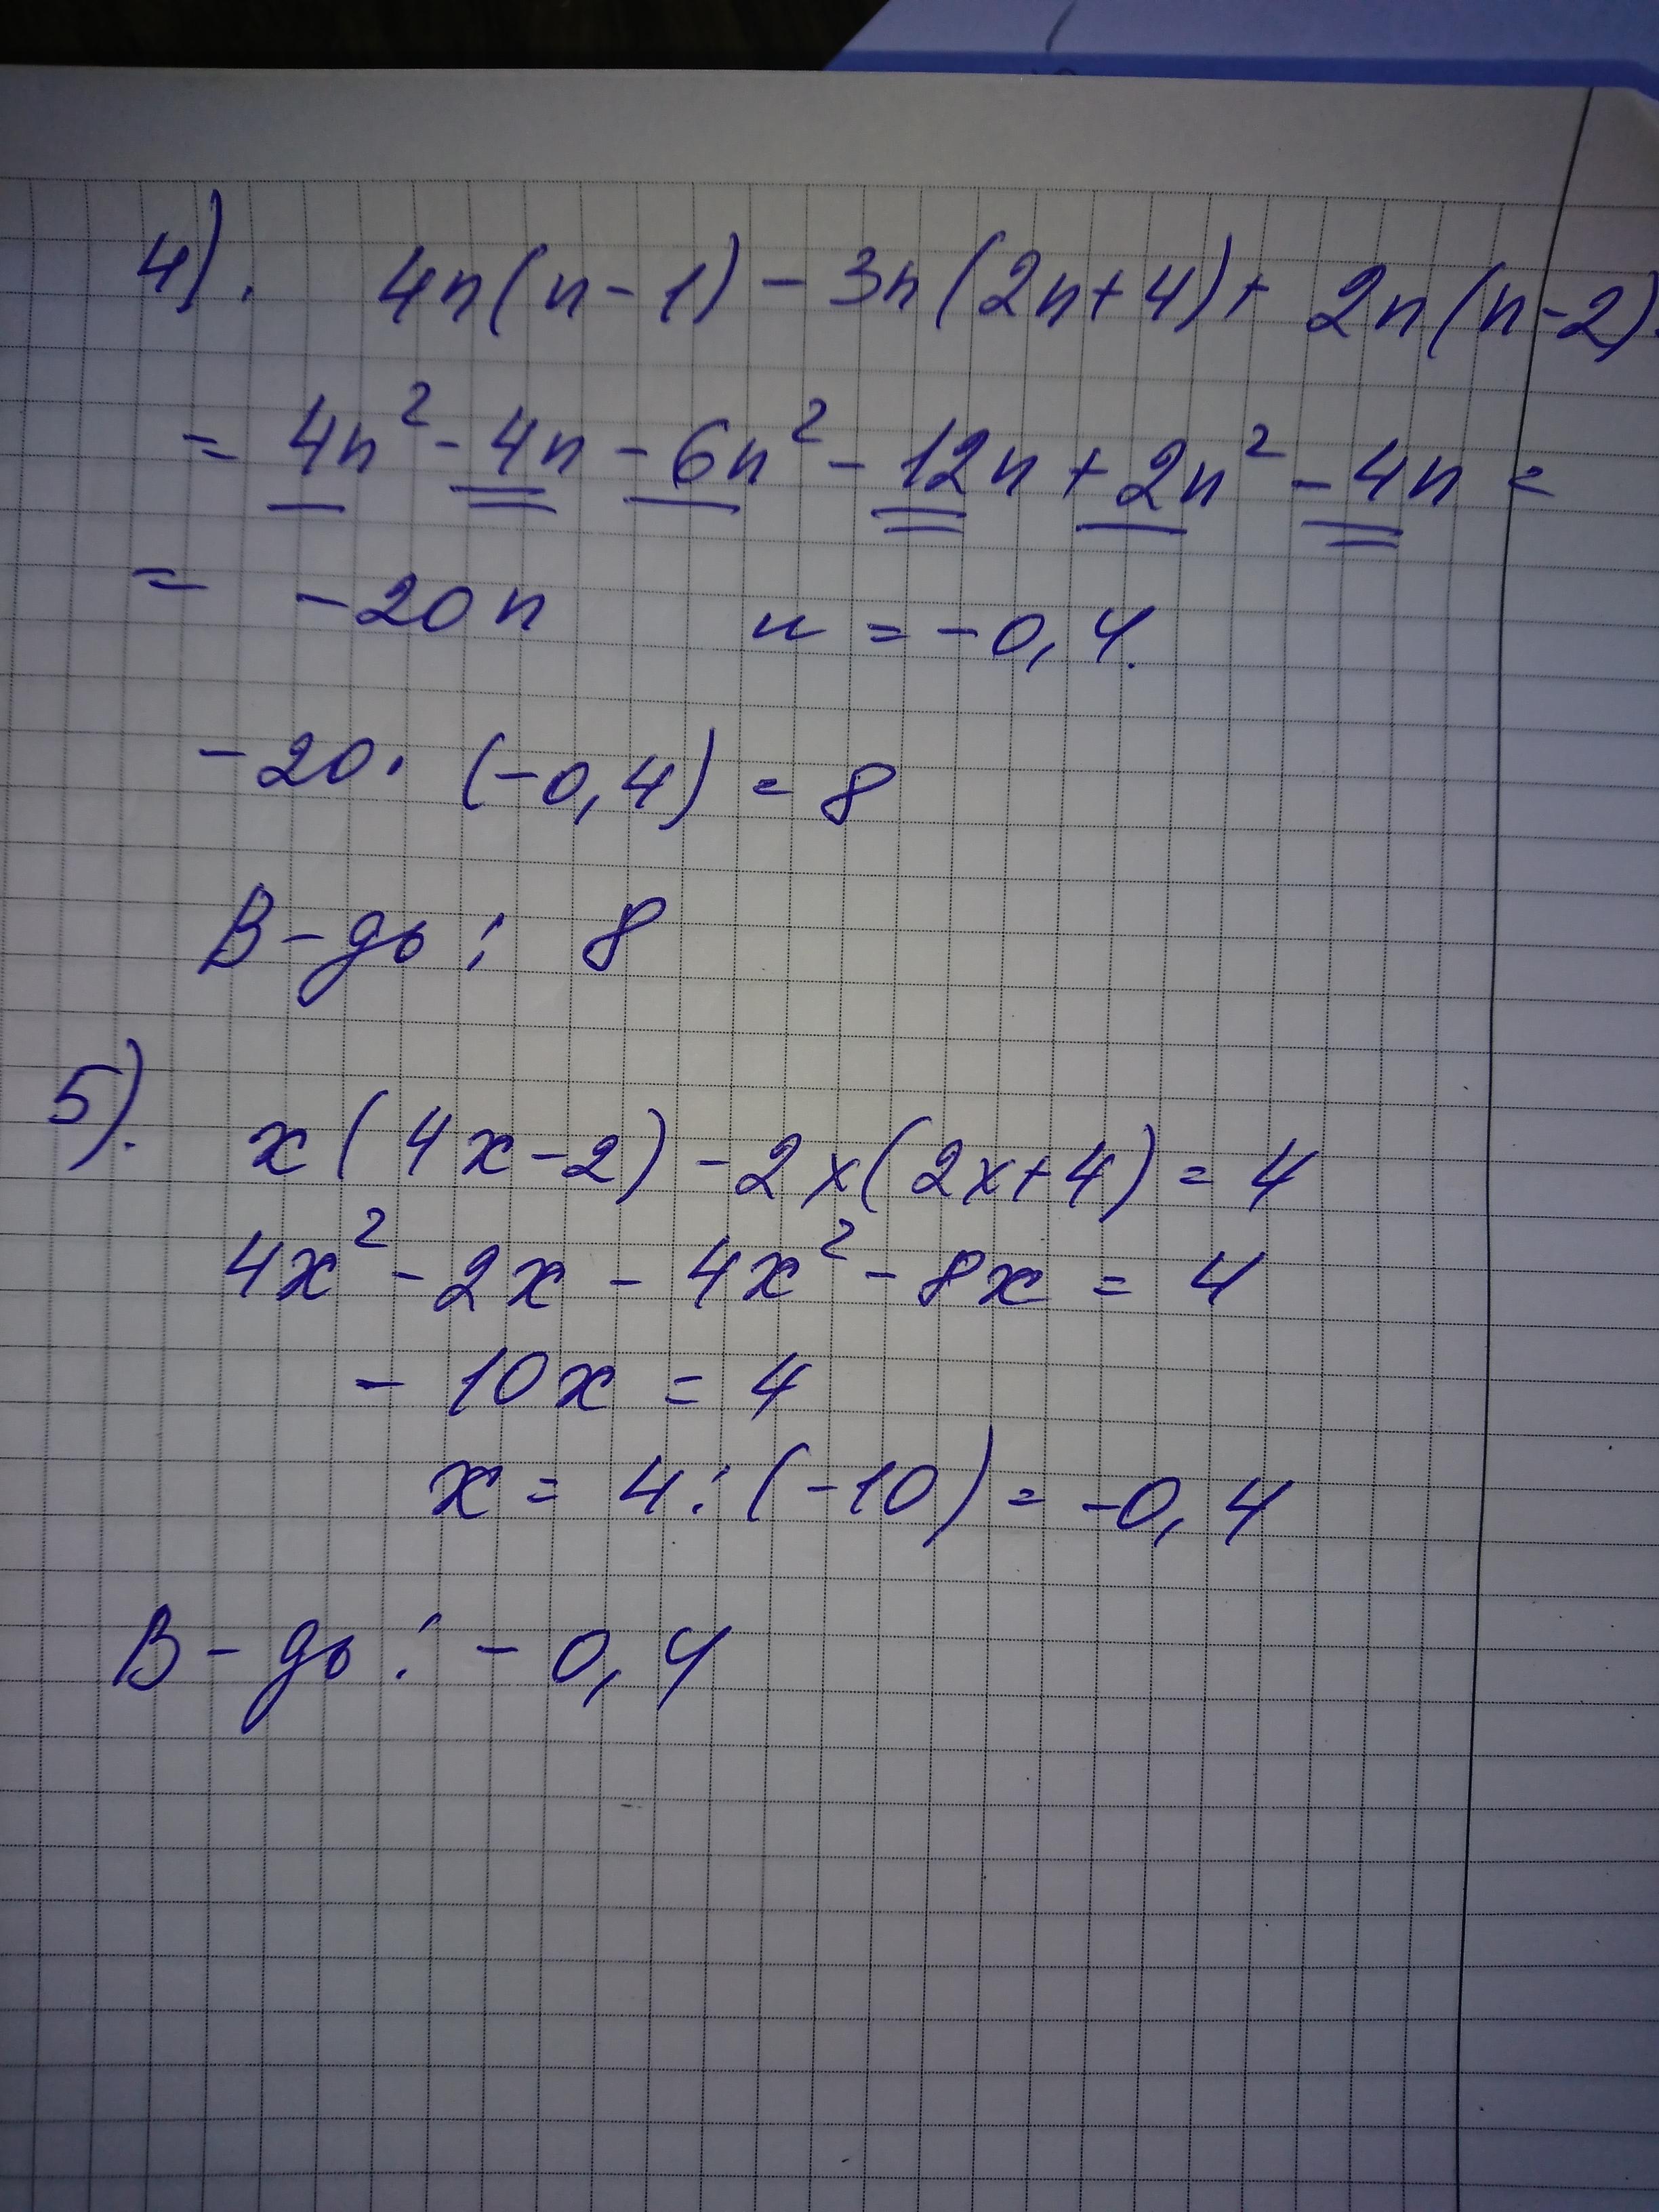 4). 4n(n-1) - 3n(2n+4) + 2n(n-2) =
= 4n² - 4n - 6n² - 12n + 2n² - 4n =
= -20n n = -0,4.
-20 · (-0,4) = 8
В-дь: 8
5). x(4x-2) - 2x(2x+4) = 4
4x² - 2x - 4x² - 8x = 4
- 10x = 4
x = 4 : (-10) = -0,4
В-дь: -0,4